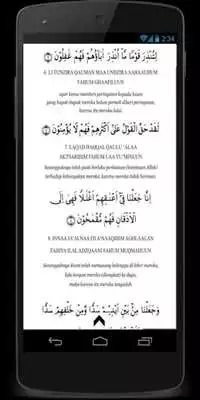 2:34
لِتُنْذِرَ قَوْمًا مَّا أُنْذِرَ آبَاؤُهُمْ فَهُمْ غَافِلُونَ
6. LI TUNDZIRA QAUMAN MAA UNDZIRA AABAAUHUM
FAHUM GHAAFILUUN
agar kamu memberi peringatan kepada kaum
yang bapak-bapak mereka belum pernah diberi peringatan,
karena itu mereka lalai.
لَقَدْ حَقَّ الْقَوْلُ عَلَىٰ أَكْثَرِهِمْ فَهُمْ لَا يُؤْمِنُونَ
7. LAQAD HAQQAL QAULU 'ALAA
AKTSARIHIM FAHUM LAA YU'MINUUN
Sesungguhnya telah pasti berlaku perkataan (ketentuan Allah)
terhadap kebanyakan mereka, karena mereka tidak beriman.
إِنَّا جَعَلْنَا فِي أَعْنَاقِهِمْ أَغْلَالًا فَهِيَ إِلَى
الْأَذْقَانِ فَهُمْ مُّقْمَحُونَ
8. INNAA JA'ALNAA FII A'NAAQIHIM AGHLAALAN
FAHIYA ILAL ADZQAANI FAHUM MUQMAHUUN
Sesungguhnya kami telah memasang belenggu di leher mereka,
lalu tangan mereka (diangkat) ke dagu,
maka karena itu mereka tertengadah.
وَجَعَلْنَا مِنْ بَيْنِ أَيْدِيهِمْ سَدًّا وَّمِنْ خَلْفِهِمْ سَدًّا